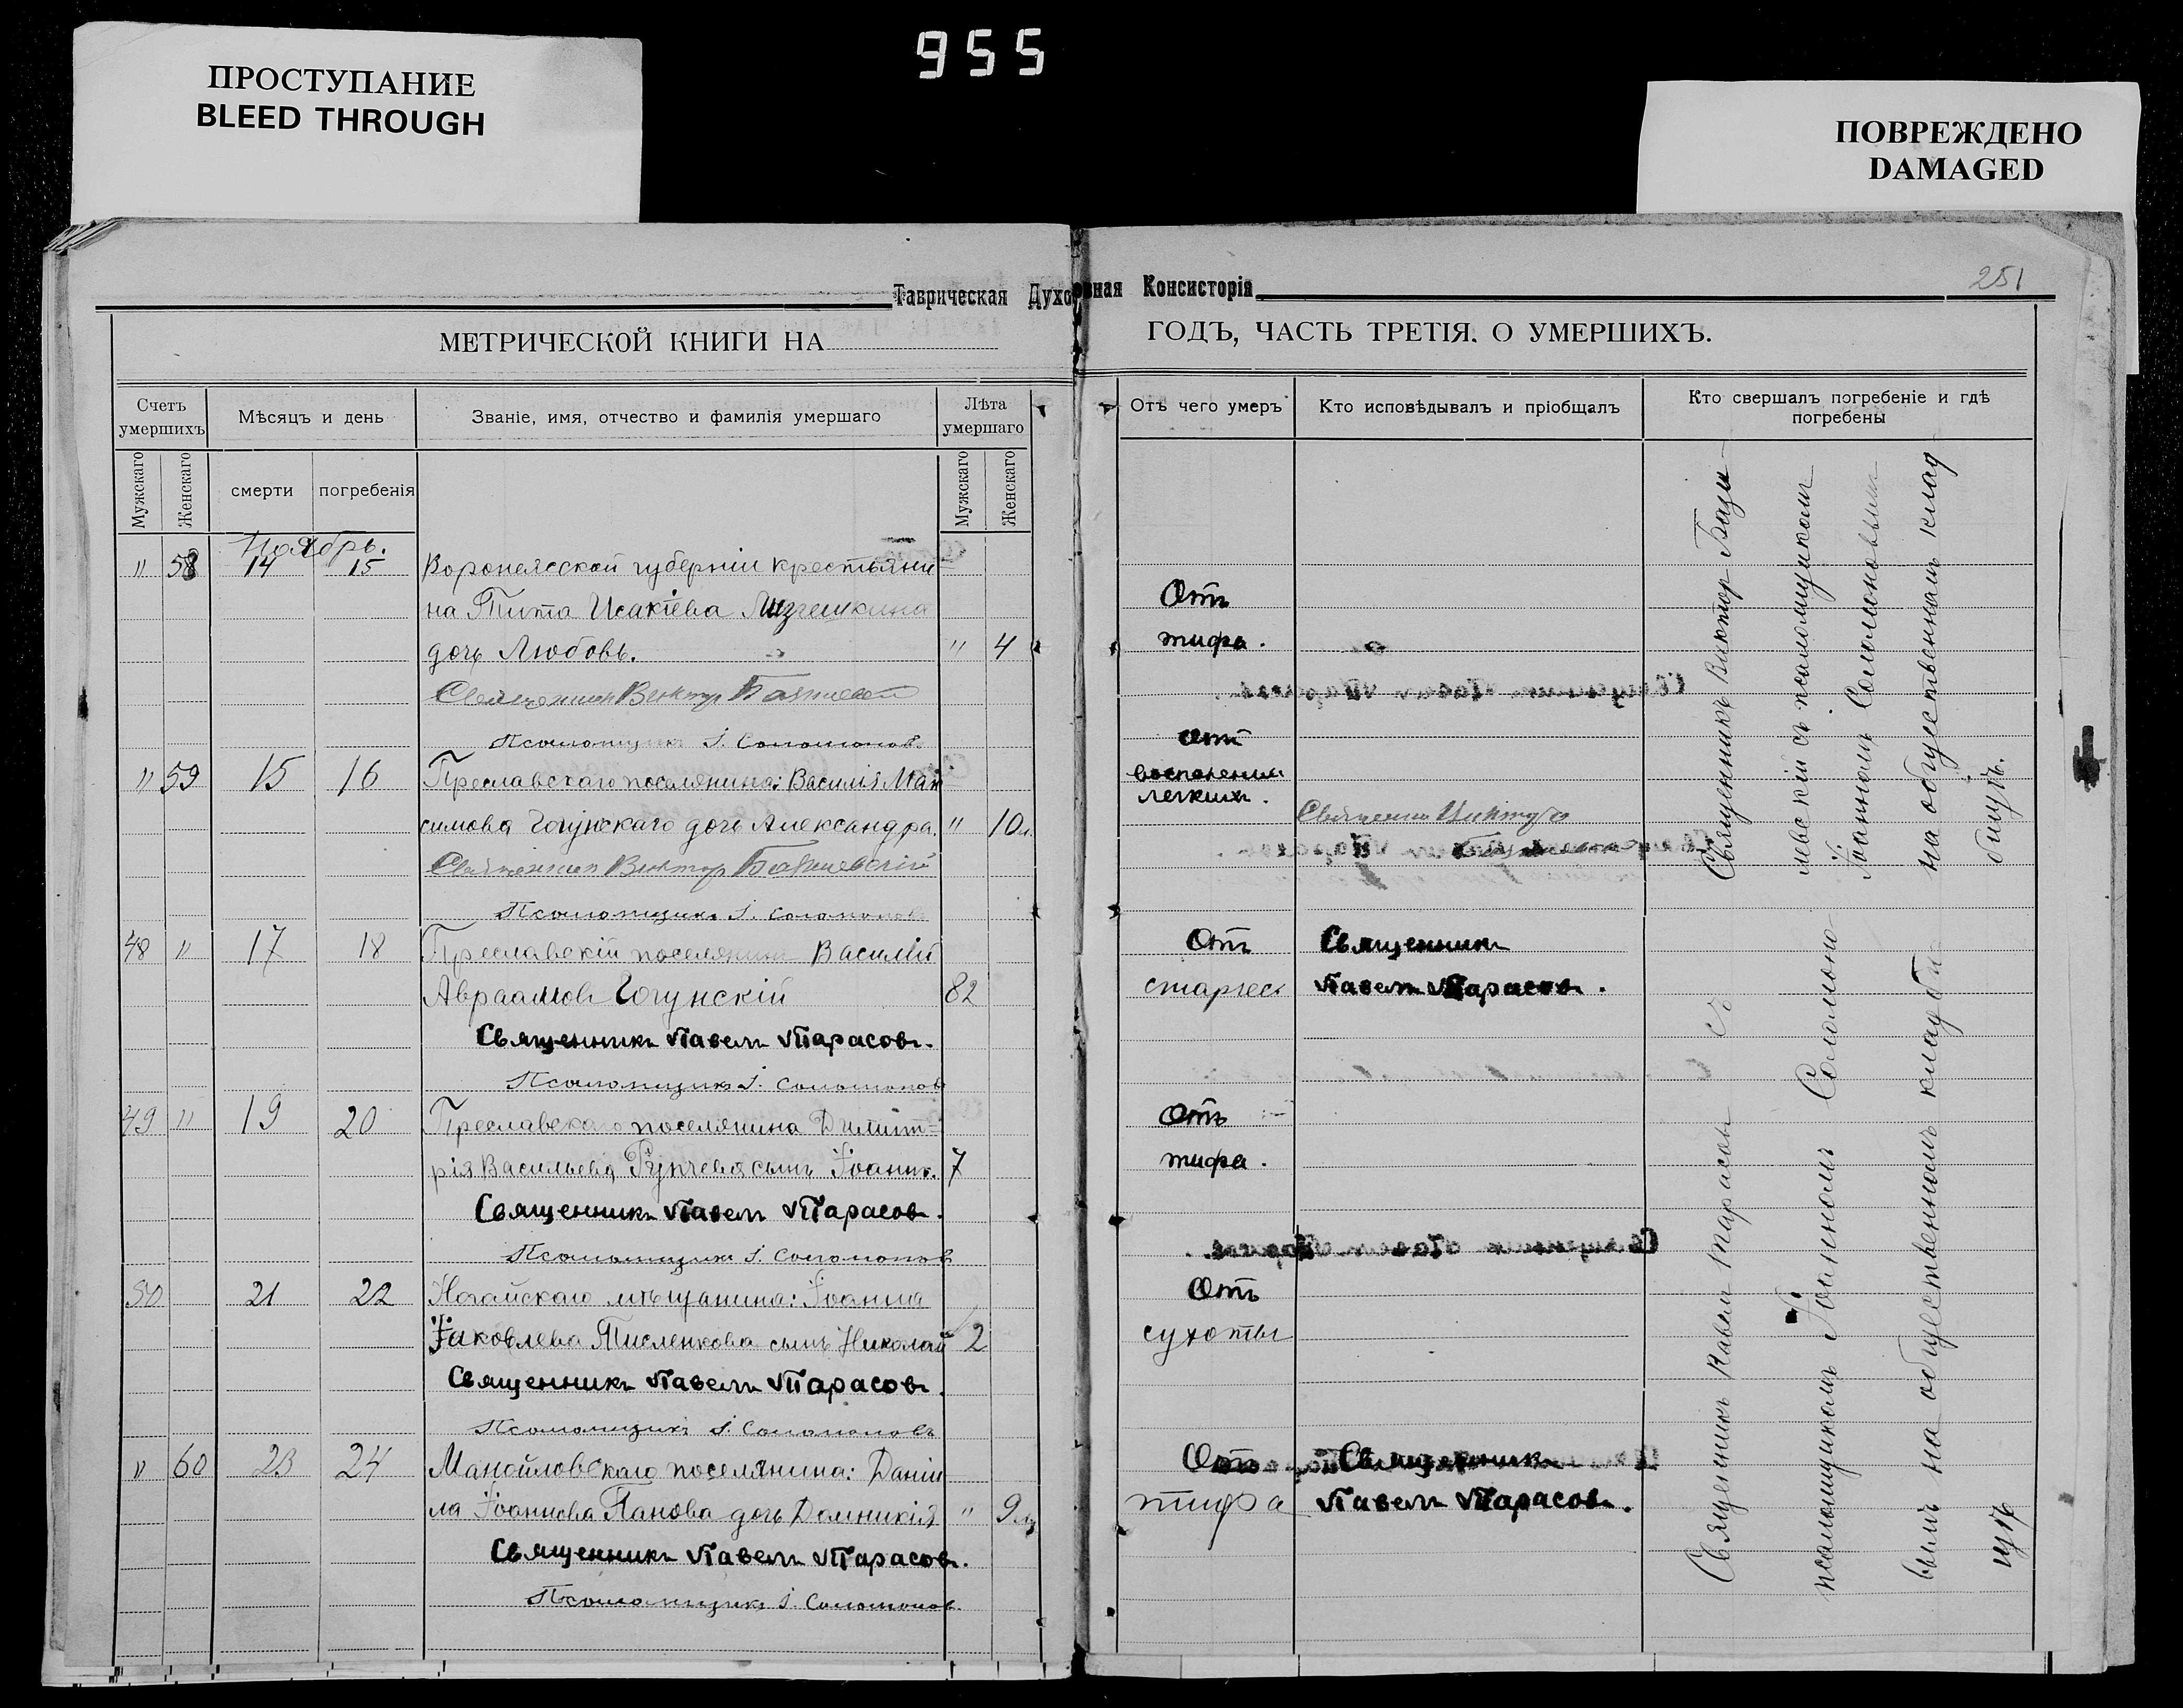 955
ПРОСТУПАНИЕ
BLEED THROUGH
ПОВРЕЖДЕНО
DAMAGED
Таврическая Духовная Консисторія
251
МЕТРИЧЕСКОЙ КНИГИ НА
ГОДЪ, ЧАСТЬ ТРЕТІЯ. О УМЕРШИХЪ.
Счетъ умершихъ
Мѣсяцъ и день
Званіе, имя, отчество и фамилія умершаго
Лѣта умершаго
Мужскаго
Женскаго
смерти
погребенія
Мужскаго
Женскаго
Отъ чего умеръ
Кто исповѣдывалъ и пріобщалъ
Кто свершалъ погребеніе и гдѣ
погребены
Ноябрь.
" 58 14 15 Воронежской губерніи крестьяни
на Тита Исакіева
дочь Любовь. " 4
Священникъ Викторъ
Псаломщикъ І. Соломоновъ
" 59 15 16 Преславскаго поселянина: Василія Мак
симова Гогунскаго дочь Александра. " 10
Священникъ Викторъ
Псаломщикъ І. Соломоновъ
48 " 17 18 Преславскій поселянинъ Василій
Авраамовъ Гогунскій 82
Священникъ Павелъ Тарасовъ.
Псаломщикъ І. Соломоновъ
49 " 19 20 Преславскаго поселянина Димит=
рія Васильева сынъ Іоаннъ. 7
Священникъ Павелъ Тарасовъ.
Псаломщикъ І. Соломоновъ
50 21 22 Ногайскаго мѣщанина: Іоанна
Іаковлева Тисленкова сынъ Николай 2
Священникъ Павелъ Тарасовъ.
Псаломщикъ І. Соломоновъ
" 60 23 24 Манойловскаго поселянина: Даніи
ла Іоаннова Панова дочь Домникія " 9
Священникъ Павелъ Тарасовъ.
Псаломщикъ І. Соломоновъ.
Отъ
тифа.
Отъ
воспаленія
легкихъ.
Священникъ Викторъ
Отъ
Священникъ
старости
Павелъ Тарасовъ.
Отъ
тифа.
Отъ
сухоты
Отъ
Священникъ
тифа
Павелъ Тарасовъ.
Священникъ Викторъ Бази
левскій съ псаломщикомъ
Іоанномъ Соломоновымъ
на общественномъ клад
бищѣ.
Священникъ Павелъ Тарасовъ съ
псаломщикомъ Іоанномъ Соломоно
вымъ на общественномъ кладби
щѣ